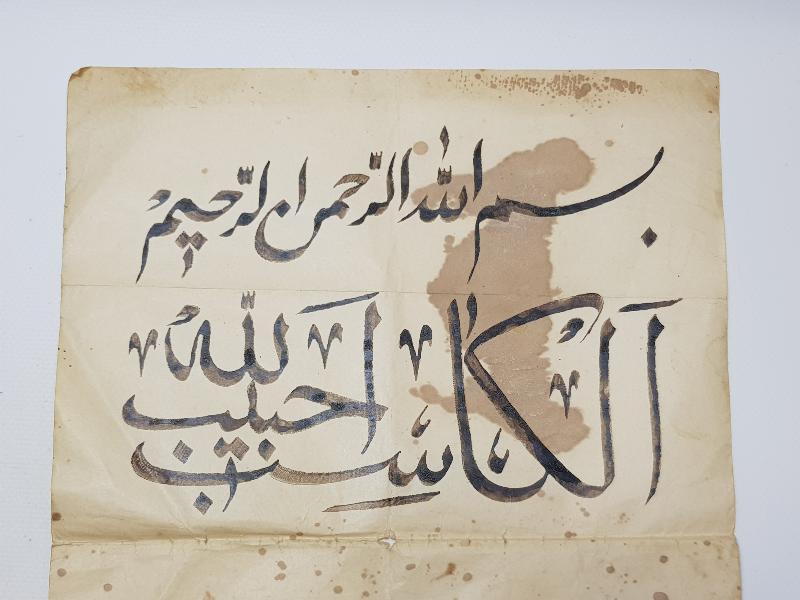 بسم الله الرحمن الرحيم
الكاسب حبيب الله